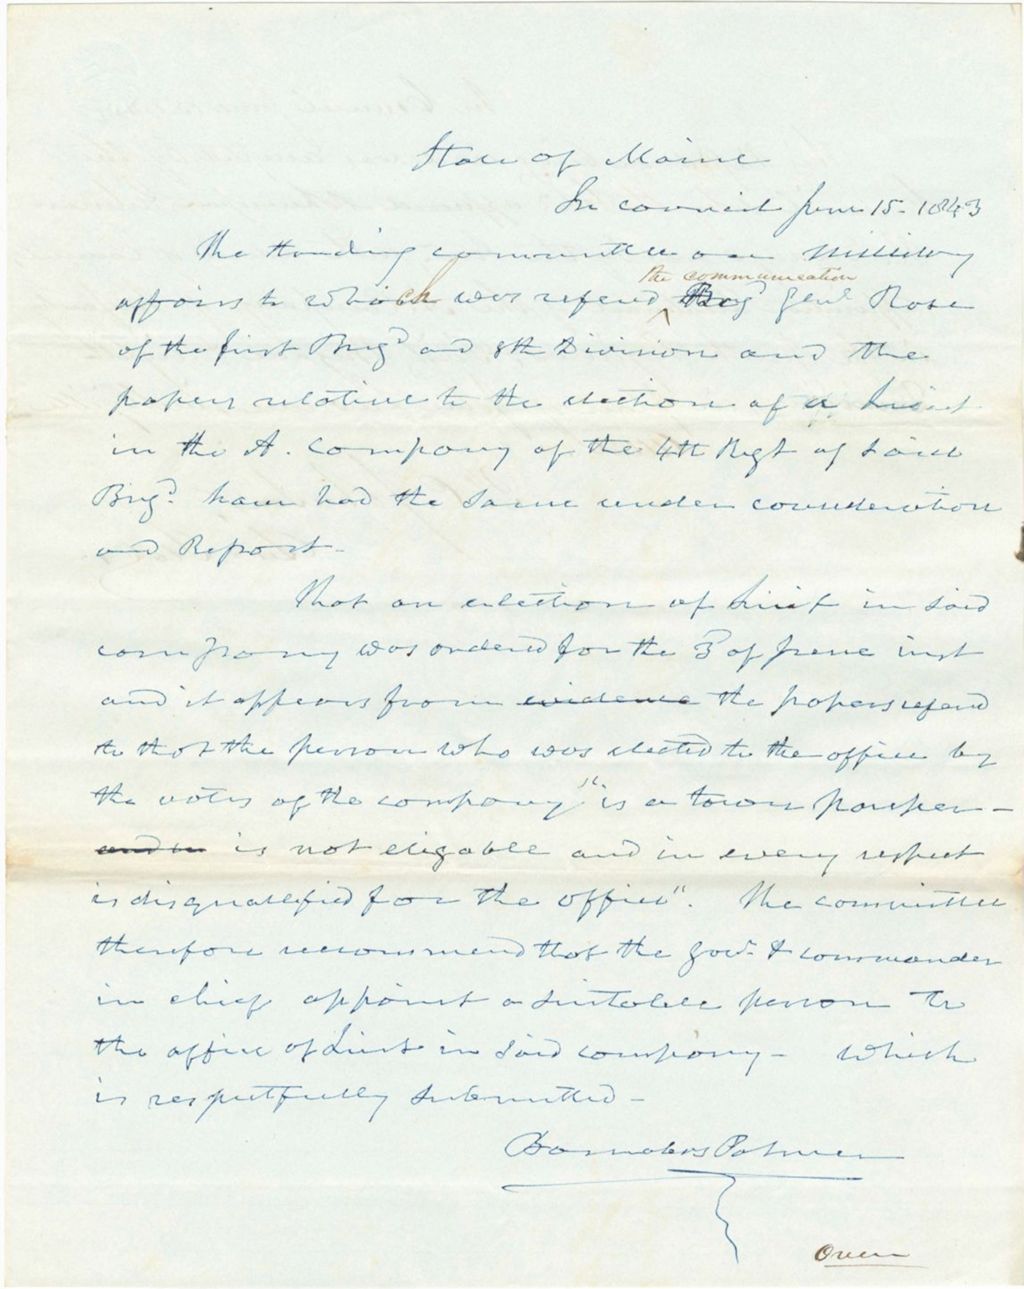 State of Maine
In council June 15. 1843
The standing committee on military
affairs to which was referd the communication Brigd Genl Rose
of the first Brigd and 8th Division and the
papers relative to the election of a Lieut
in the A. company of the 4th Regt of said
Brigd. have had the same under consideration
and Report-
That an election of Lieut in said
company was ordered for the 3d of June inst
and it appears from evidence the papers referd
to that the person who was elected to the office by
the votes of the company "is a town pauper-
and in is not eligable and in every respect
is disqualified for the office". The committee
therefore recommend that the gov. & commander
in chief appoint a suitable person to
the office of Lieut in said company- which
is respectfully submitted-
Barnabas Palmer
Over